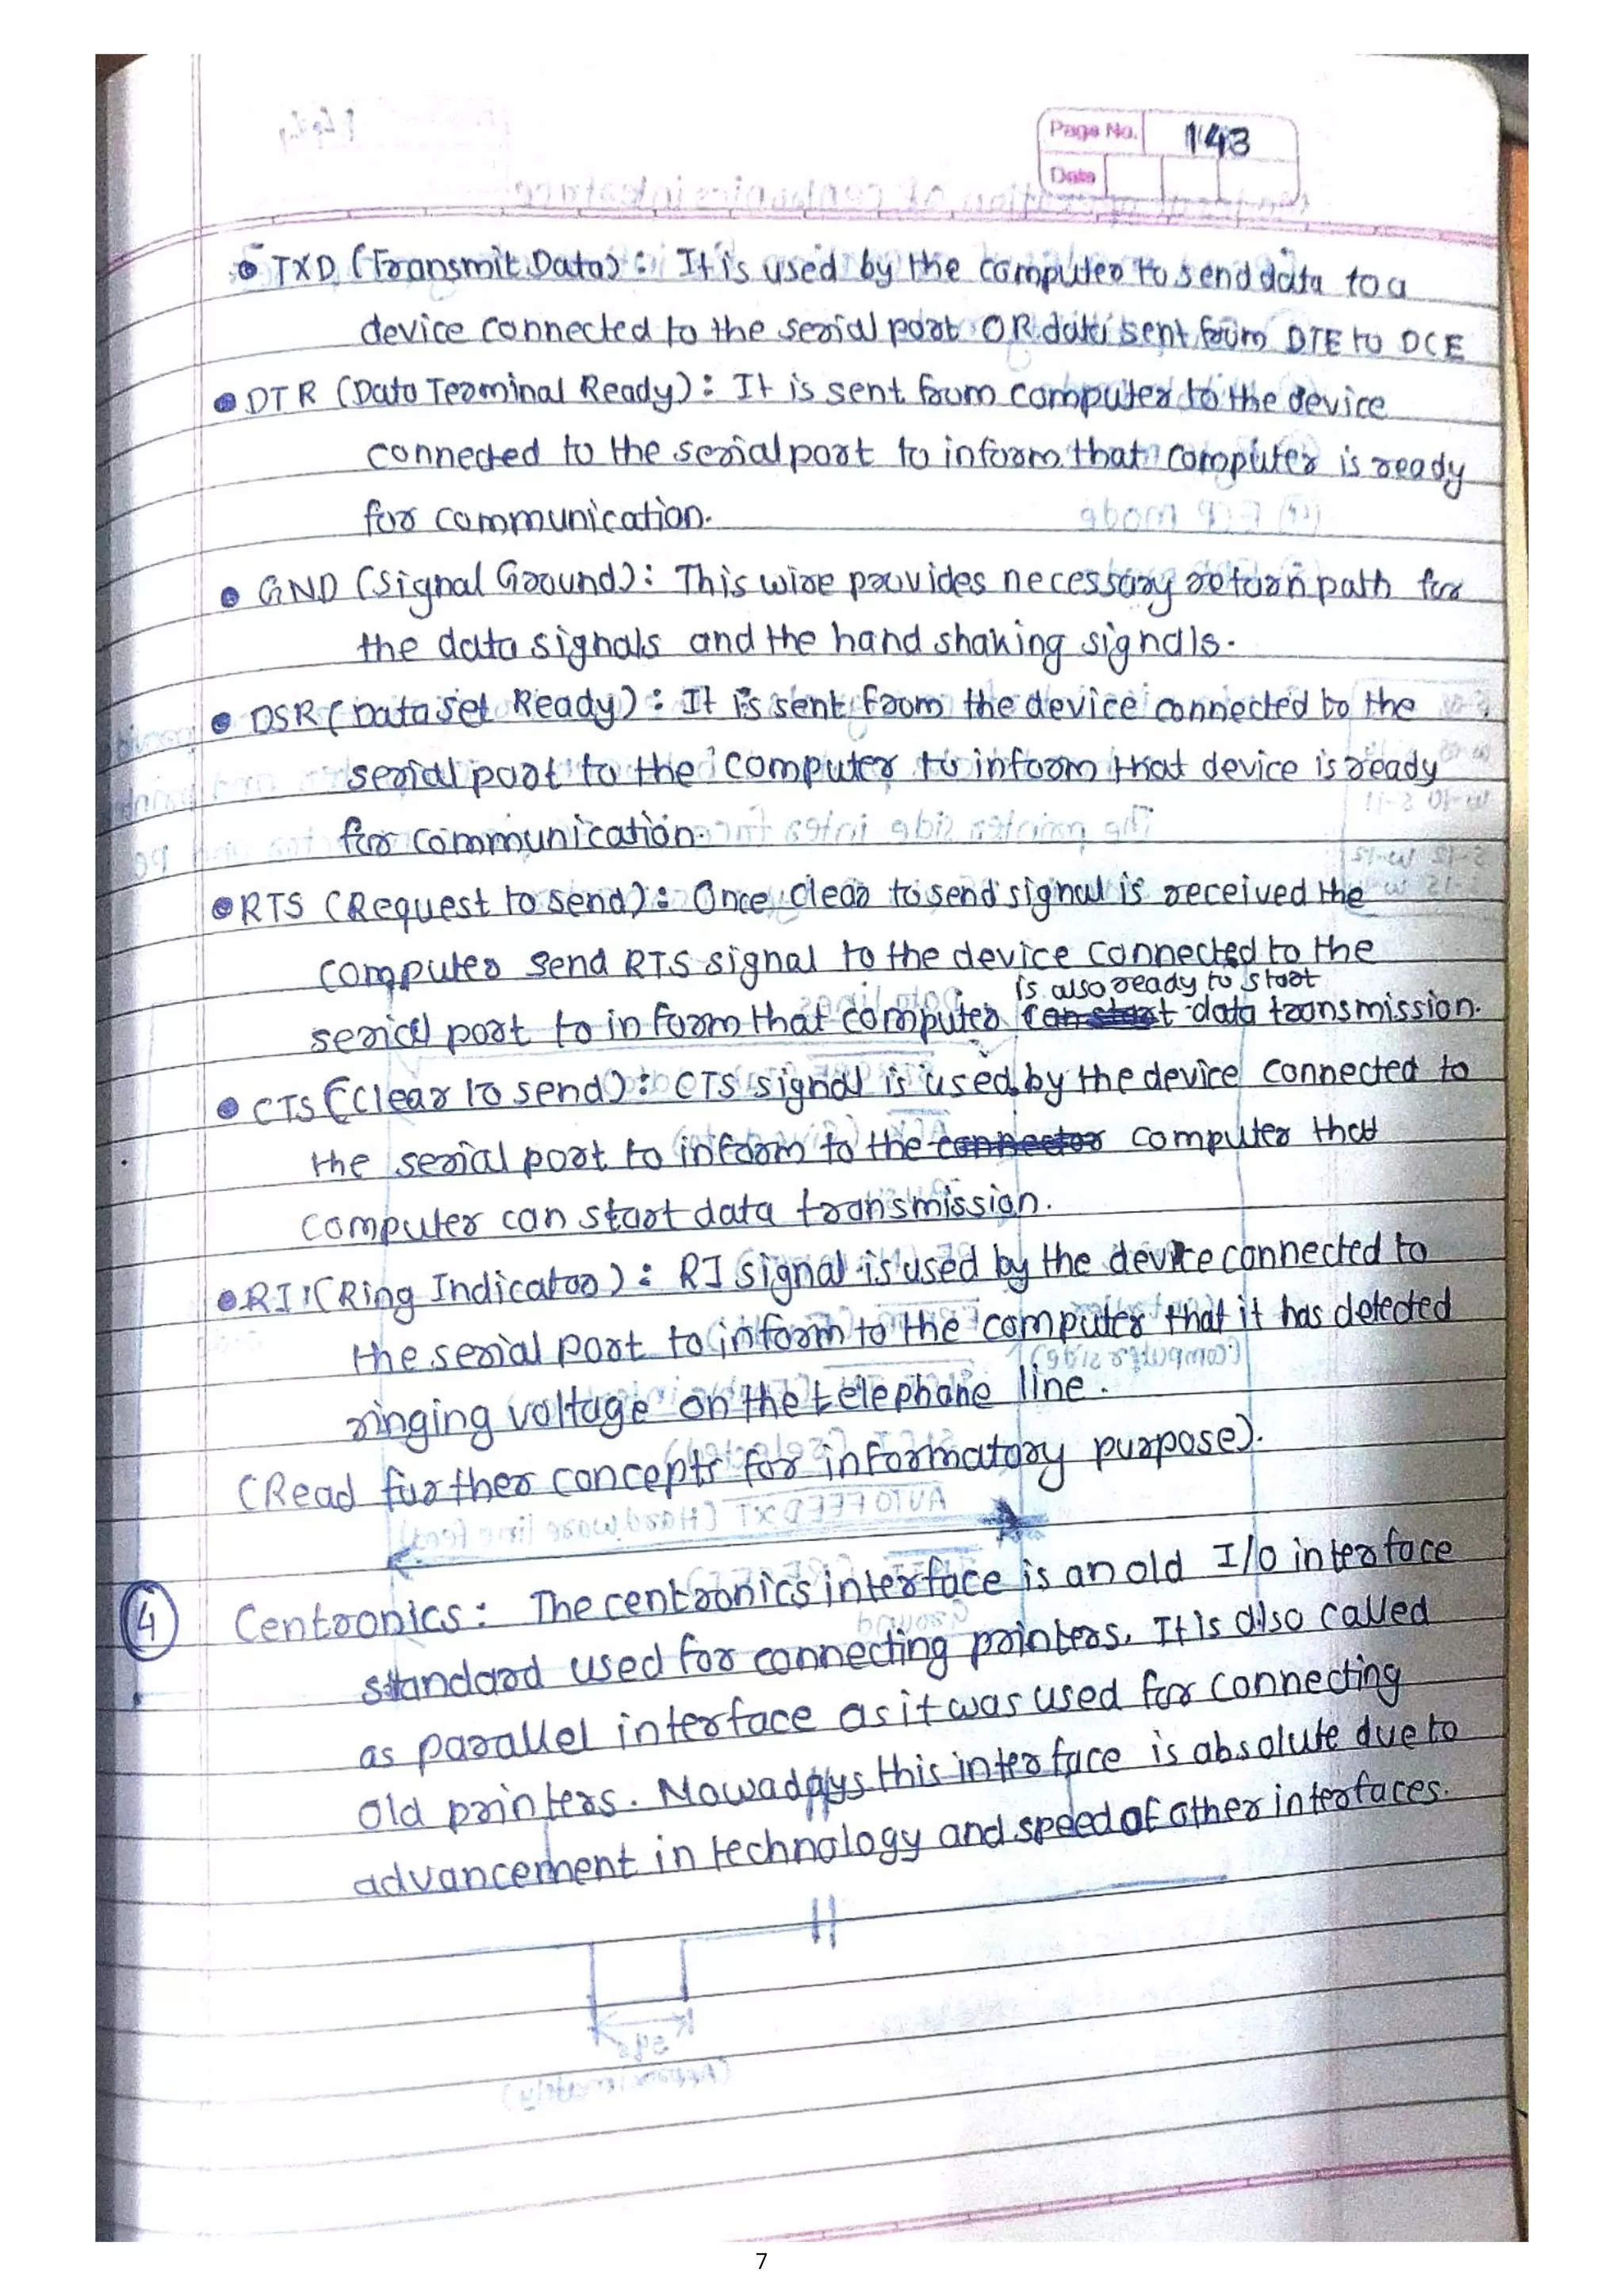 Page No. 143
Date
• TXD (Transmit Data) : It is used by the computer to send data to a
device connected to the serial port OR data sent from DTE to DCE
• DTR (Data Terminal Ready) : It is sent from computer to the device
connected to the serial port to inform that computer is ready
for communication.
• GND (Signal Ground) : This wire provides necessary return path for
the data signals and the hand shaking signals.
• DSR (Data Set Ready) : It is sent from the device connected to the
serial port to the computer to inform that device is ready
for communication.
• RTS (Request to send) : Once clear to send signal is received the
computer send RTS signal to the device connected to the
is also ready to start
serial port to inform that computer can start data transmission.
• CTS (Clear To send) : CTS signal is used by the device connected to
the serial port to inform to the connector computer that
computer can start data transmission.
• RI (Ring Indicator) : RI signal is used by the device connected to
the serial port to inform to the computer that it has detected
ringing voltage on the telephone line.
(Read further concepts for informatory purpose).
4 Centronics : The centronics interface is an old I/O interface
standard used for connecting printers. It is also called
as parallel interface as it was used for connecting
old printers. Nowadays this interface is absolute due to
advancement in technology and speed of other interfaces.
7